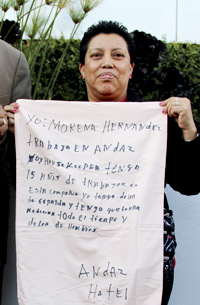 Yo: MORENA HERNANdez
tRAbAJO EN ANDAZ
SOY HousKeePeR teNGO
15 AÑos de tRAbAJAR eN
Esta compañia yo tengo dolor
de espalda y tengo que tomar
Medicina todo el tiempo y
doloR de Hombros
ANdAz
Hotel